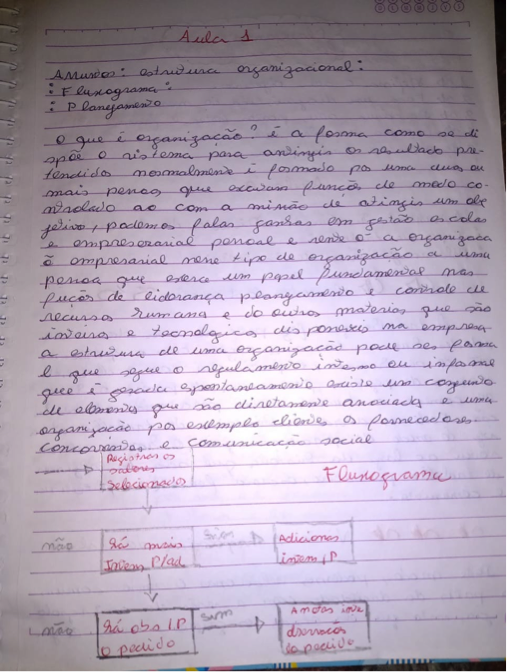 Aula 1
Assuntos: estrutura organizacional:
: Fluxograma:
: Planejamento
O que é organização? é a forma como se di
spõe o sistema para atingir os resultado pre-
tendidos normalmente é formado por uma duas ou
mais pessoas que execam função de modo co-
ntrolado ao com a missão de atingir um obje
jetivo, podemos falar em gestão escolar
e empresarial pessoal e a organizaca
ó empresarial nesse tipo de organização a uma
pessoa que exerce um papel fundamental nas
fuções de liderança planejamento e controle de
recursos humana e do outros materios que são
e tecnológico disponeis na empresa
a estrutura de uma organização pode ser forma
l que segue o regulamento interno ou informal
que é gerada espontaneamente existe um conjunto
de elementos que são diretamente associada e uma
organização por exemplo clientes os fornecedores.
concorrentes e comunicação social
Registrar os
Selecionados
Fluxograma
não
Há mais
Intem P/ad
sim
Adicionar
intem, P
não
Há obs I.P
o pedido
sim
Anotar
do pedido